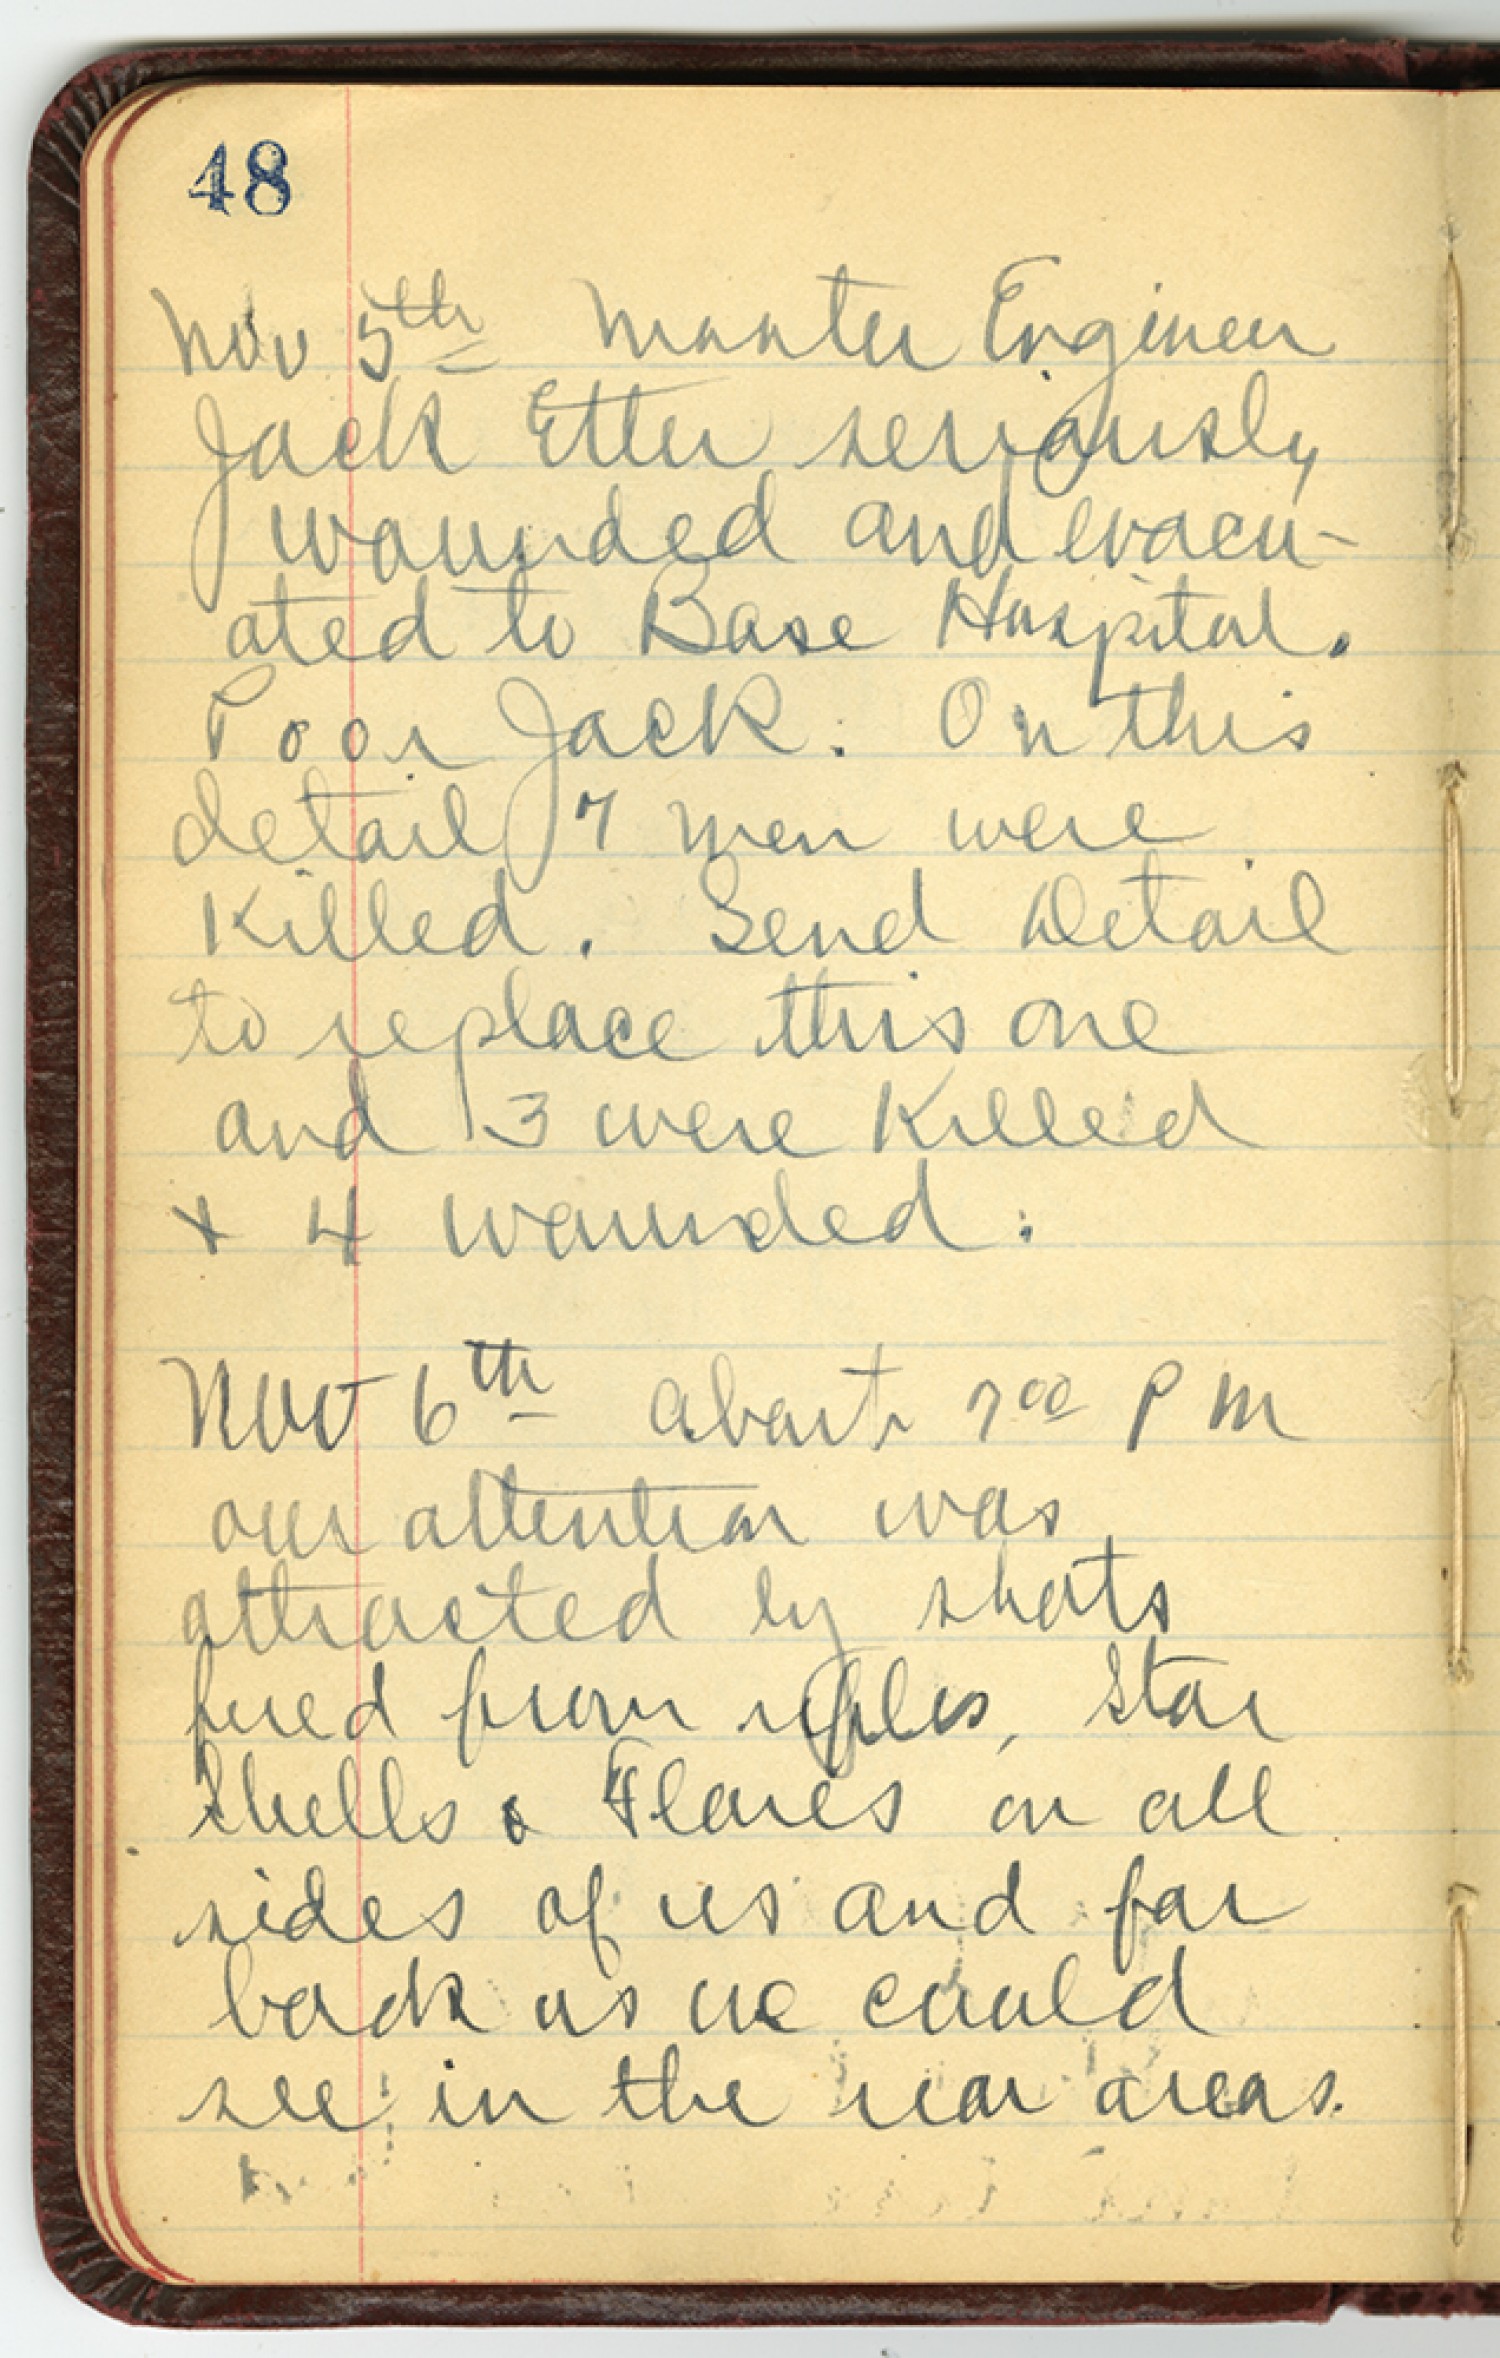 48
Nov 5th Master Engineer
Jack Etter seriously
wounded and evacu-
ated to Base Hospital.
Poor Jack. On this
detail 7 men were
Killed. Send Detail
to replace this one
and 3 were Killed
& 4 wounded.
Nov 6th About 7 00 P M
our attention was
attracted by shots
fired from rifles, Star
Shells & Flares on all
sides of us and far
back as we could
see in the rear areas.